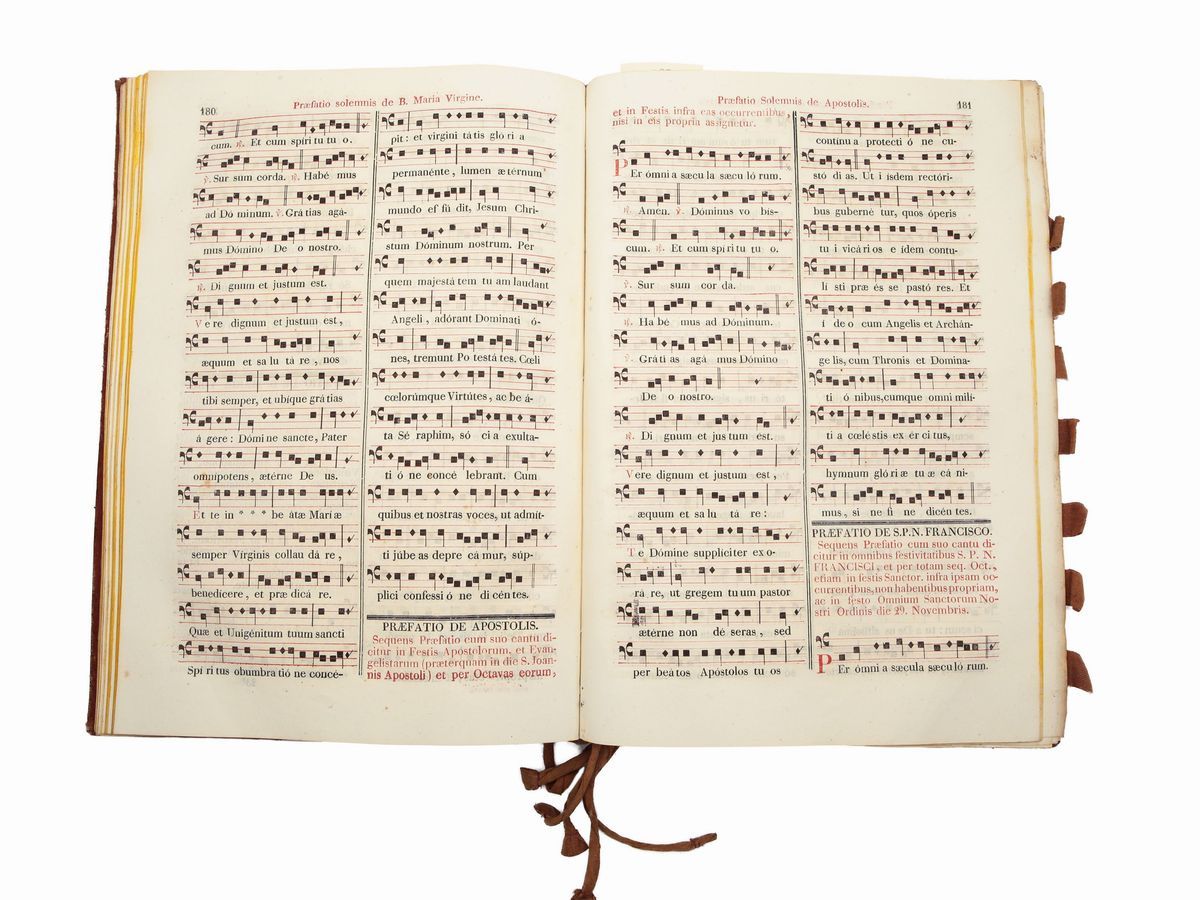 180
Præfatio solemnis de B. Maria Virgine.
cum. ℟. Et cum spiri tu tu o.
℣. Sur sum corda. ℟. Habé mus
ad Dó minum. ℣. Grá tias agá-
mus Dómino De o nostro.
℟. Di gnum et justum est.
Vere dignum et justum est,
æquum et sa lu tá re, nos
tibi semper, et ubíque grátias
á gere: Dómi ne sancte, Pater
omnipotens, ætérne De us.
Et te in * * * be átæ Maríæ
semper Vírginis collau dá re,
benedícere, et præ dicá re.
Quæ et Unigénitum tuum sancti
Spí ri tus obumbra tió ne concé-
pit: et virgini tátis gló ri a
permanénte, lumen æ térnum
mundo ef fú dit, Jesum Chri-
stum Dóminum nostrum. Per
quem majestá tem tu am laudant
Angeli, adórant Dominati ó-
nes, tremunt Po testá tes. Cœli
cœlorúmque Virtútes, ac be á-
ta Sé raphim, só ci a exulta-
ti ó ne concé lebrant. Cum
quibus et nostras voces, ut admít-
ti júbe as depre cá mur, súp-
plici confessi ó ne di cén tes.
PRÆFATIO DE APOSTOLIS.
Sequens Præfatio cum suo cantu di-
citur in Festis Apostolorum, et Evan-
gelistarum (præterquam in die S. Joan-
nis Apostoli) et per Octavas eorum,
Præfatio Solemnis de Apostolis.
181
et in Festis infra eas occurrentibus,
nisi in eis propria assignetur.
Per ómni a sæcu la sæcu ló rum.
℟. Amen. ℣. Dóminus vo bis-
cum. ℟. Et cum spi ri tu tu o.
℣. Sur sum cor da.
℟. Ha bé mus ad Dóminum.
℣. Grá ti as agá mus Dómino
De o nostro.
℟. Di gnum et jus tum est.
Vere dignum et justum est,
æquum et sa lu tá re:
Te Dómine suppliciter ex o-
rá re, ut gregem tu um pastor
ætérne non dé seras, sed
per beátos Apóstolos tu os
contínu a protecti ó ne cu-
stó di as. Ut i ísdem rectóri-
bus guberné tur, quos óperis
tu i vicári os e ídem contu-
lí sti præ és se pastó res. Et
í de o cum Angelis et Archán-
ge lis, cum Thronis et Domina-
ti ó nibus, cumque omni milí-
ti a cœléstis ex ér ci tus,
hymnum gló ri æ tu æ cá ni-
mus, si ne fi ne dicén tes.
PRÆFATIO DE S. P. N. FRANCISCO.
Sequens Præfatio cum suo cantu di-
citur in omnibus festivitatibus S. P. N.
FRANCISCI, et per totam seq. Oct.,
etiam in festis Sanctor. infra ipsam oc-
currentibus, non habentibus propriam,
ac in festo Omnium Sanctorum No-
stri Ordinis die 29. Novembris.
Per ómni a sæcula sæcu ló rum.